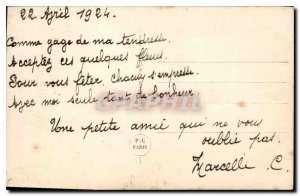 22 Avril 1924.
Comme gage de ma tendresse
Acceptez ces quelques fleurs.
Pour vous fêter, chacun s'empresse
Avec moi seule tant de bonheur.
Une petite amie qui ne vous
oublie pas.
Marcelle C.
P-C
PARIS